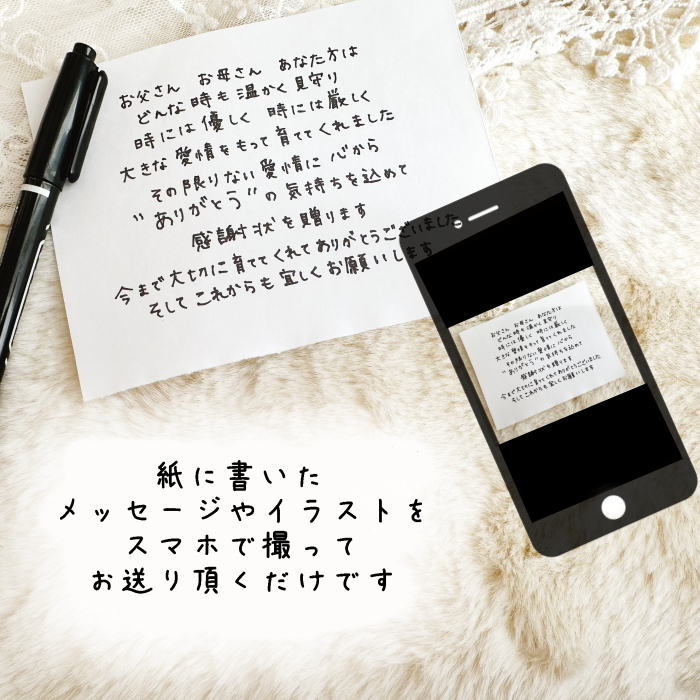 お父さん お母さん あなた方は
どんな時も温かく見守り
時には優しく 時には厳しく
大きな愛情をもって育ててくれました
その限りない愛情に 心から
"ありがとう"の気持ちを込めて
感謝状を贈ります
今まで大切に育ててくれてありがとうございました
そしてこれからも宜しくお願いします
お父さん お母さん あなた方は
どんな時も温かく見守り
時には優しく 時には厳しく
大きな愛情をもって育ててくれました
その限りない愛情に 心から
"ありがとう"の気持ちを込めて
感謝状を贈ります
今まで大切に育ててくれてありがとうございました
そしてこれからも宜しくお願いします
紙に書いた
メッセージやイラストを
スマホで撮って
お送り頂くだけです